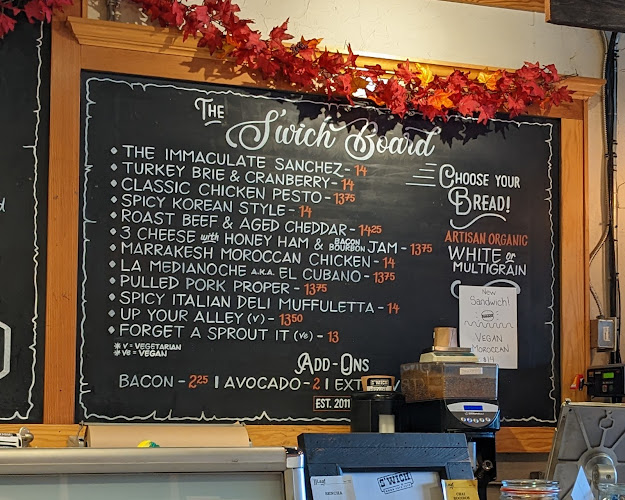 THE S'wich Board
• THE IMMACULATE SANCHEZ - 14
• TURKEY BRIE & CRANBERRY - 14
• CLASSIC CHICKEN PESTO - 13.75
• SPICY KOREAN STYLE - 14
• ROAST BEEF & AGED CHEDDAR - 14.25
• 3 CHEESE with HONEY HAM & BACON BOURBON JAM - 13.75
• MARRAKESH MOROCCAN CHICKEN - 14
• LA MEDIANOCHE A.K.A. EL CUBANO - 13.75
• PULLED PORK PROPER - 13.75
• SPICY ITALIAN DELI MUFFULETTA - 14
• UP YOUR ALLEY (V) - 13.50
• FORGET A SPROUT IT (VE) - 13
* V = VEGETARIAN
* VE = VEGAN
CHOOSE YOUR
BREAD!
ARTISAN ORGANIC
WHITE or
MULTIGRAIN
New
Sandwich!
VEGAN
MOROCCAN
$14
ADD-ONS
BACON - 2.25 | AVOCADO - 2 |
EST. 2011
S'WICH